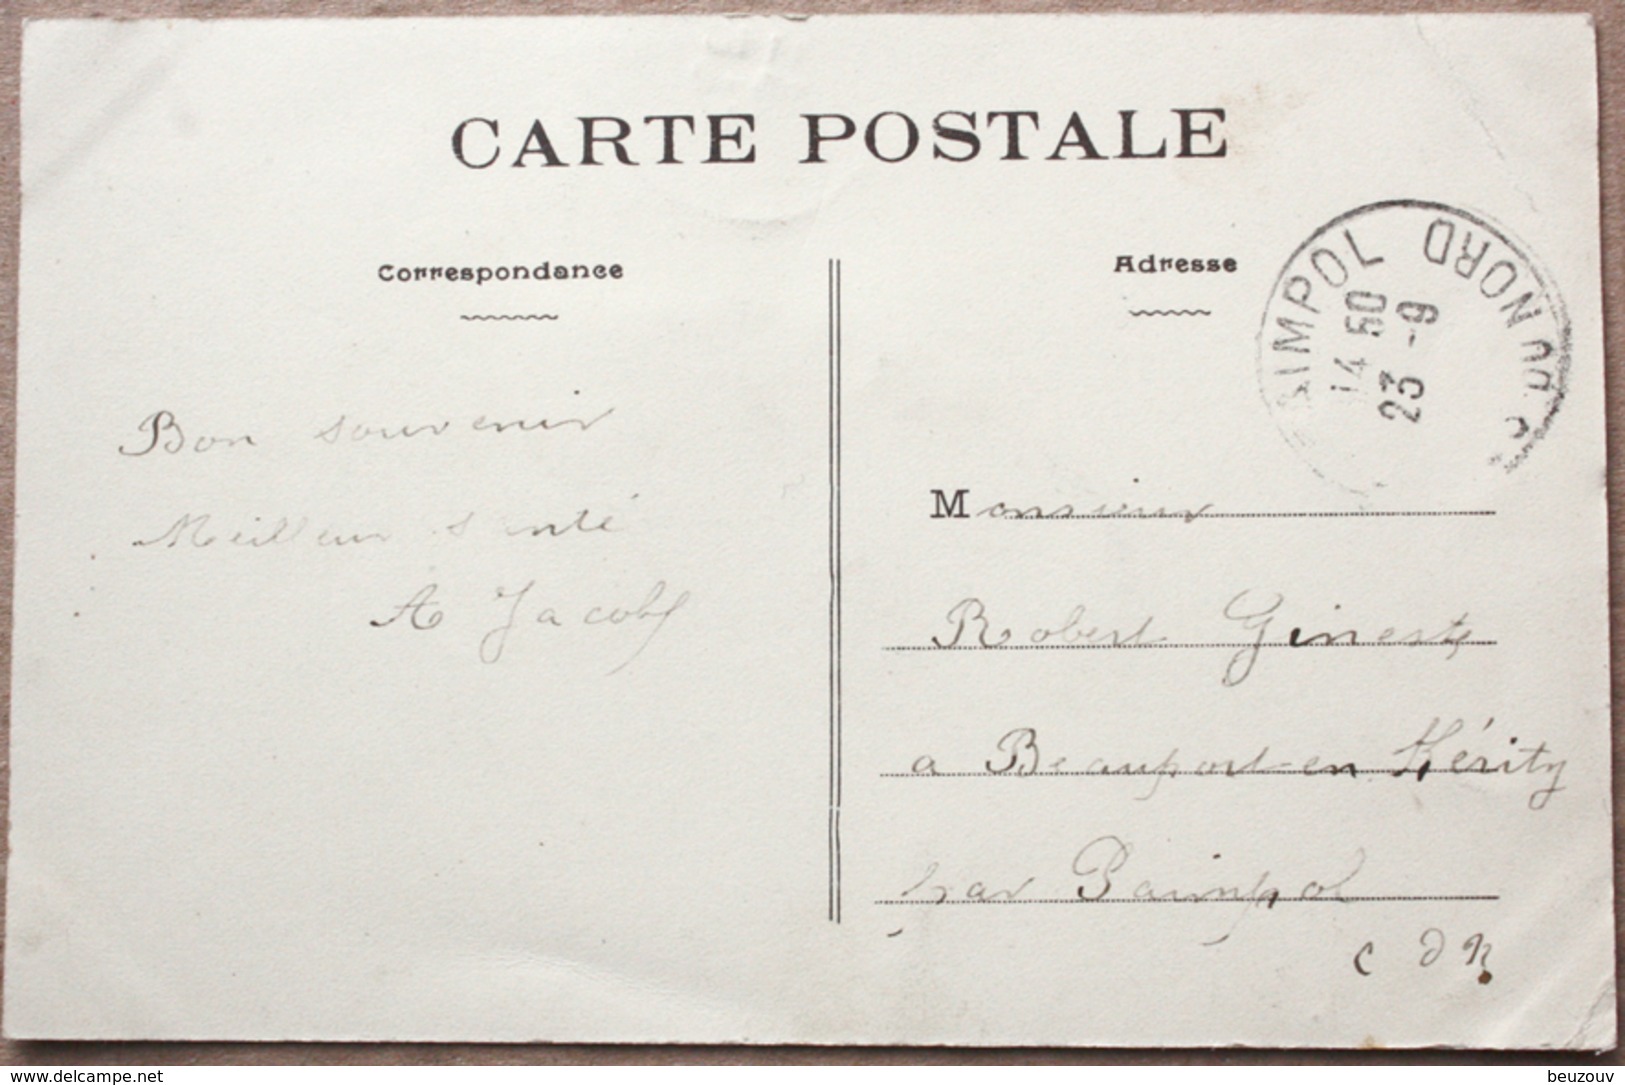 CARTE POSTALE
Correspondance
Bon souvenir
Meilleur santé
A Jacob
Adresse
PAIMPOL
CÔTES DU NORD
14 50
23 -9
Monsieur
Robert Gineste
a Beauport-en Kérity
par Paimpol
C D N
www.delcampe.net
beuzouv